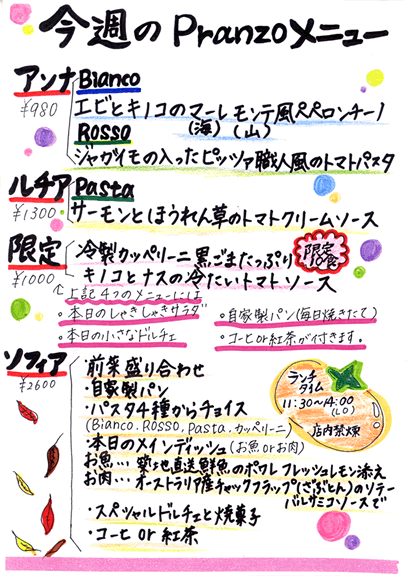 今週のPranzoメニュー
アンナ Bianco
¥980 エビとキノコのマーレモンテ風ペペロンチーノ
(海)(山)
Rosso
ジャガイモの入ったピッツァ職人風のトマトパスタ
ルチア Pasta
¥1300 サーモンとほうれん草のトマトクリームソース
限定 冷製カッペリーニ黒ごまたっぷり 限定10食
¥1000 キノコとナスの冷たいトマトソース
↑上記4つのメニューには
・本日のしゃきしゃきサラダ ・自家製パン(毎日焼きたて)
・本日の小さなドルチェ ・コーヒor紅茶が付きます。
ソフィア ・前菜盛り合わせ
¥2600 ・自家製パン
・パスタ4種からチョイス
(Bianco.Rosso.Pasta.カッペリーニ)
・本日のメインディッシュ(お魚orお肉)
お魚…築地直送鮮魚のポワレ フレッシュレモン添え
お肉…オーストラリア産チャックフラップ(ざぶとん)のソテー
バルサミコソースで
・スペシャルドルチェと焼菓子
・コーヒ or 紅茶
ランチ
タイム
11:30~14:00
(LO)
店内禁煙